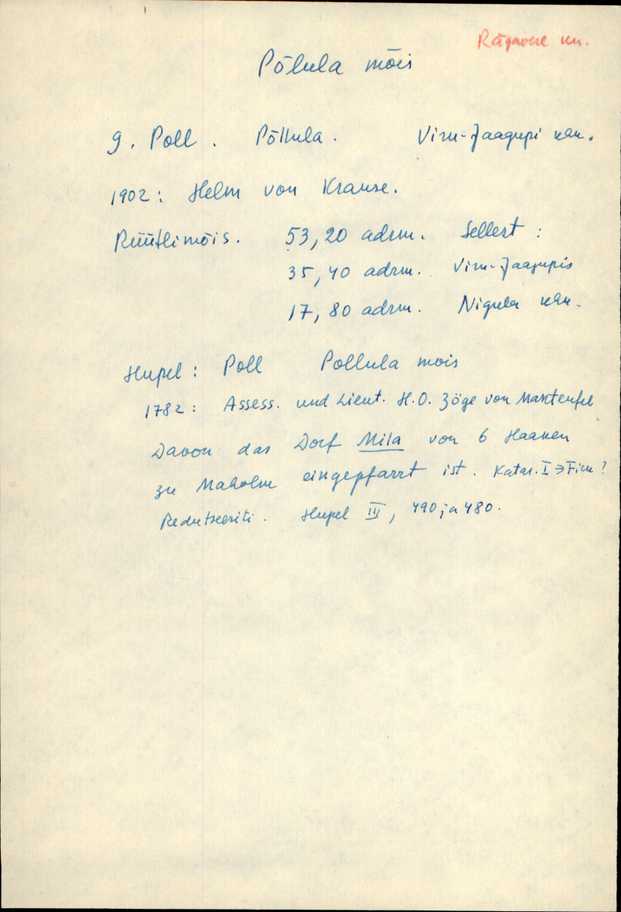 Rägavere kn.
Põlula mõis
9. Poll. Põllula. Viru-Jaagupi kh.
1902: Helm von Krause.
Rüütlimõis. 53,20 adrm. Sellest:
35,40 adrm. Viru-Jaagupis
17,80 adrm. Nigula kh.
Hupel: Poll Pollula mois
1782: Assess. und Lieut. H.O. Zöge von Manteufel
Davon das Dorf Mila von 6 Haaken
zu Maholm eingepfarrt ist. Katar. I
Redutseeriti. Hupel III, 490 ja 480.